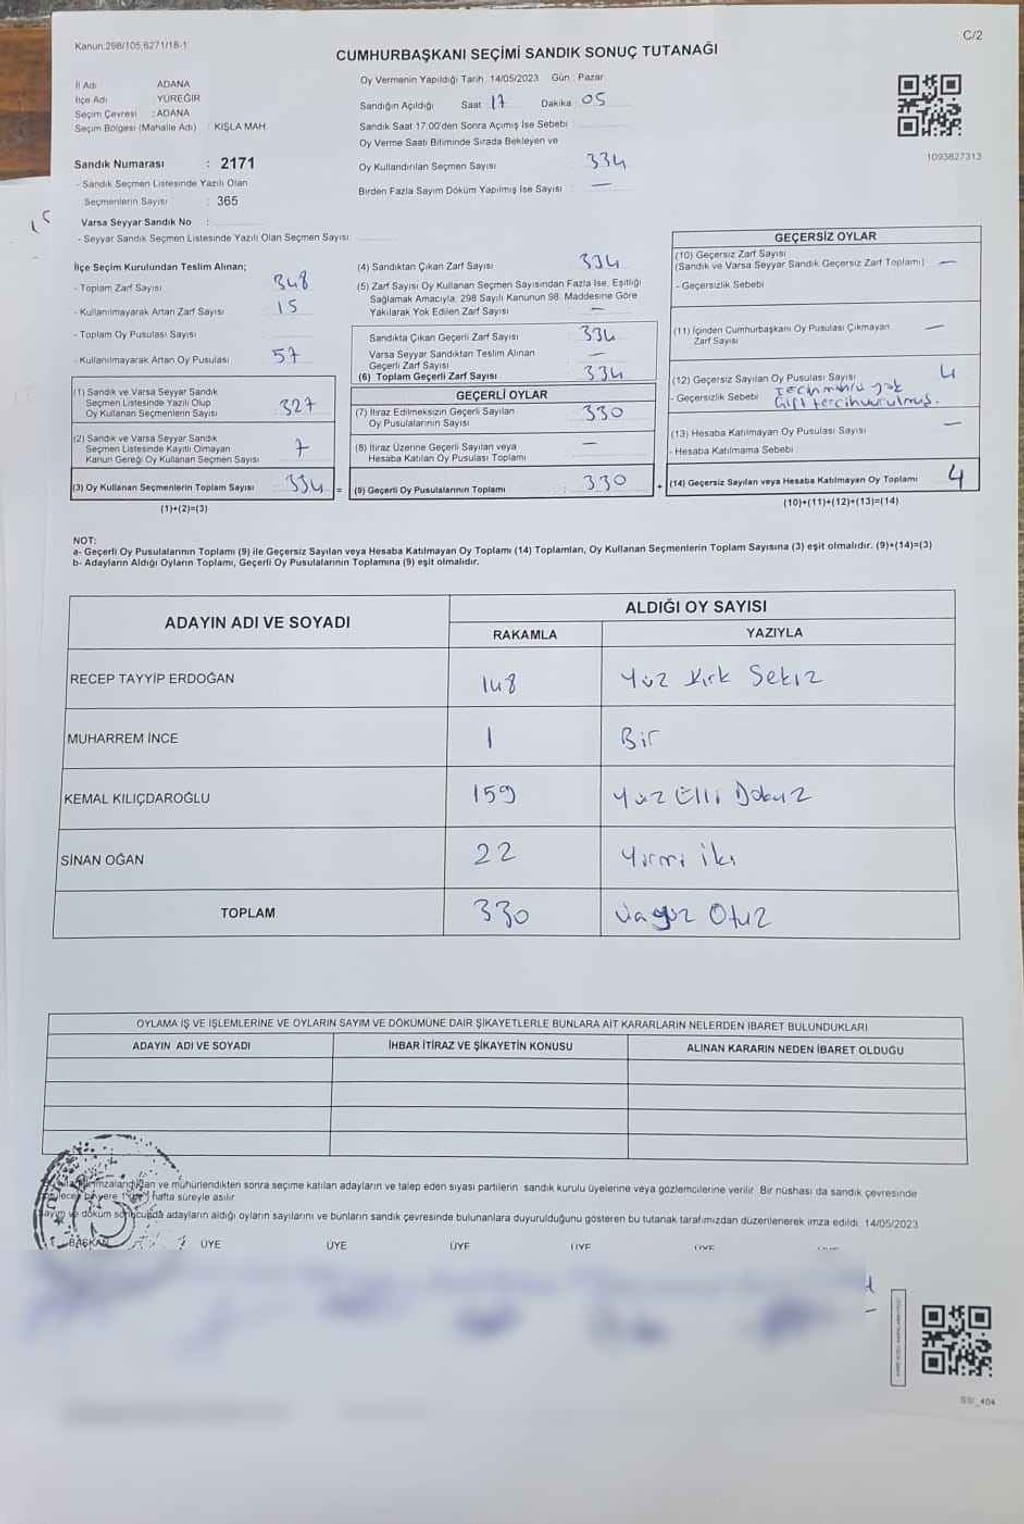 Kanun:298/105,6271/18-1
C/2
CUMHURBAŞKANI SEÇİMİ SANDIK SONUÇ TUTANAĞI
İl Adı ADANA
İlçe Adı YÜREĞİR
Seçim Çevresi : ADANA
Seçim Bölgesi (Mahalle Adı) : KIŞLA MAH.
Sandık Numarası : 2171
- Sandık Seçmen Listesinde Yazılı Olan
Seçmenlerin Sayısı : 365
Varsa Seyyar Sandık No :
- Seyyar Sandık Seçmen Listesinde Yazılı Olan Seçmen Sayısı:
Oy Vermenin Yapıldığı Tarih : 14/05/2023 Gün : Pazar
Sandığın Açıldığı Saat 17 Dakika 05
Sandık Saat 17:00'den Sonra Açımış İse Sebebi :
Oy Verme Saati Bitiminde Sırada Bekleyen ve
Oy Kullandırılan Seçmen Sayısı 334
Birden Fazla Sayım Döküm Yapılmış İse Sayısı : —
1093827313
İlçe Seçim Kurulundan Teslim Alınan;
- Toplam Zarf Sayısı 348
- Kullanılmayarak Artan Zarf Sayısı : 15
- Toplam Oy Pusulası Sayısı
- Kullanılmayarak Artan Oy Pusulası 57
(1) Sandık ve Varsa Seyyar Sandık
Seçmen Listesinde Yazılı Olup
Oy Kullanan Seçmenlerin Sayısı 327
(2) Sandık ve Varsa Seyyar Sandık
Seçmen Listesinde Kayıtlı Olmayan
Kanun Gereği Oy Kullanan Seçmen Sayısı 7
(3) Oy Kullanan Seçmenlerin Toplam Sayısı 334 =
(1)+(2)=(3)
(4) Sandıktan Çıkan Zarf Sayısı 334
(5) Zarf Sayısı Oy Kullanan Seçmen Sayısından Fazla İse, Eşitliği
Sağlamak Amacıyla, 298 Sayılı Kanunun 98. Maddesine Göre
Yakılarak Yok Edilen Zarf Sayısı —
Sandıkta Çıkan Geçerli Zarf Sayısı 334
Varsa Seyyar Sandıktan Teslim Alınan —
Geçerli Zarf Sayısı
(6) Toplam Geçerli Zarf Sayısı 334
GEÇERLİ OYLAR
(7) İtiraz Edilmeksizin Geçerli Sayılan
Oy Pusulalarının Sayısı : 330
(8) İtiraz Üzerine Geçerli Sayılan veya
Hesaba Katılan Oy Pusulası Toplamı : —
(9) Geçerli Oy Pusulalarının Toplamı : 330 +
GEÇERSİZ OYLAR
(10) Geçersiz Zarf Sayısı
(Sandık ve Varsa Seyyar Sandık Geçersiz Zarf Toplamı) —
- Geçersizlik Sebebi
(11) İçinden Cumhurbaşkanı Oy Pusulası Çıkmayan —
Zarf Sayısı
(12) Geçersiz Sayılan Oy Pusulası Sayısı 4
- Geçersizlik Sebebi Tercih mührü yok
Çift tercih vurulmuş.
(13) Hesaba Katılmayan Oy Pusulası Sayısı —
- Hesaba Katılmama Sebebi
(14) Geçersiz Sayılan veya Hesaba Katılmayan Oy Toplamı 4
(10)+(11)+(12)+(13)=(14)
NOT:
a- Geçerli Oy Pusulalarının Toplamı (9) ile Geçersiz Sayılan veya Hesaba Katılmayan Oy Toplamı (14) Toplamları, Oy Kullanan Seçmenlerin Toplam Sayısına (3) eşit olmalıdır. (9)+(14)=(3)
b- Adayların Aldığı Oyların Toplamı, Geçerli Oy Pusulalarının Toplamına (9) eşit olmalıdır.
ADAYIN ADI VE SOYADI
ALDIĞI OY SAYISI
RAKAMLA YAZIYLA
RECEP TAYYİP ERDOĞAN 148 Yüz Kırk Sekiz
MUHARREM İNCE 1 Bir
KEMAL KILIÇDAROĞLU 159 Yüz Elli Dokuz
SİNAN OĞAN 22 Yirmi İki
TOPLAM 330 Üçyüz Otuz
OYLAMA İŞ VE İŞLEMLERİNE VE OYLARIN SAYIM VE DÖKÜMÜNE DAİR ŞİKAYETLERLE BUNLARA AİT KARARLARIN NELERDEN İBARET BULUNDUKLARI
ADAYIN ADI VE SOYADI İHBAR İTİRAZ VE ŞİKAYETİN KONUSU ALINAN KARARIN NEDEN İBARET OLDUĞU
imzalandıktan ve mühürlendikten sonra seçime katılan adayların ve talep eden siyasi partilerin sandık kurulu üyelerine veya gözlemcilerine verilir. Bir nüshası da sandık çevresinde
bir yere 1 hafta süreyle asılır.
ve döküm sonucunda adayların aldığı oyların sayılarını ve bunların sandık çevresinde bulunanlara duyurulduğunu gösteren bu tutanak tarafımızdan düzenlenerek imza edildi. 14/05/2023
BAŞKAN ÜYE ÜYE ÜYE ÜYE ÜYE